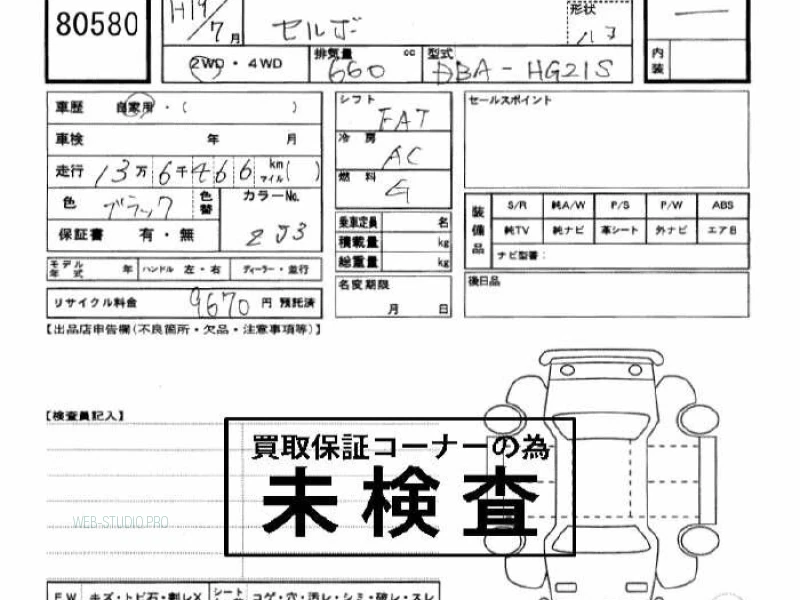 80580
H19/7月 セルボ 形状
2WD・4WD 排気量 660 cc 型式 DBA-HG21S 内装
車歴 自家用・( ) シフト FAT セールスポイント
車検 年 月 冷房 AC
走行 13万6千466km マイル( ) 燃料 G
色 ブラック 色替 カラーNo. ZJ3
装備品 S/R 純A/W P/S P/W ABS
純TV 純ナビ 革シート 外ナビ エアB
ナビ型番:
保証書 有・無
乗車定員 名
積載量 kg
総重量 kg
モデル年式 年 ハンドル 左・右 ディーラー・並行
名変期限 月 日
後日品
リサイクル料金 9670 円 預託済
【出品店申告欄(不良箇所・欠品・注意事項等)】
【検査員記入】
買取保証コーナーの為
未検査
WEB-STUDIO.PRO
FW キズ・トビ石・割レX シート コゲ・穴・汚レ・シミ・破レ・スレ